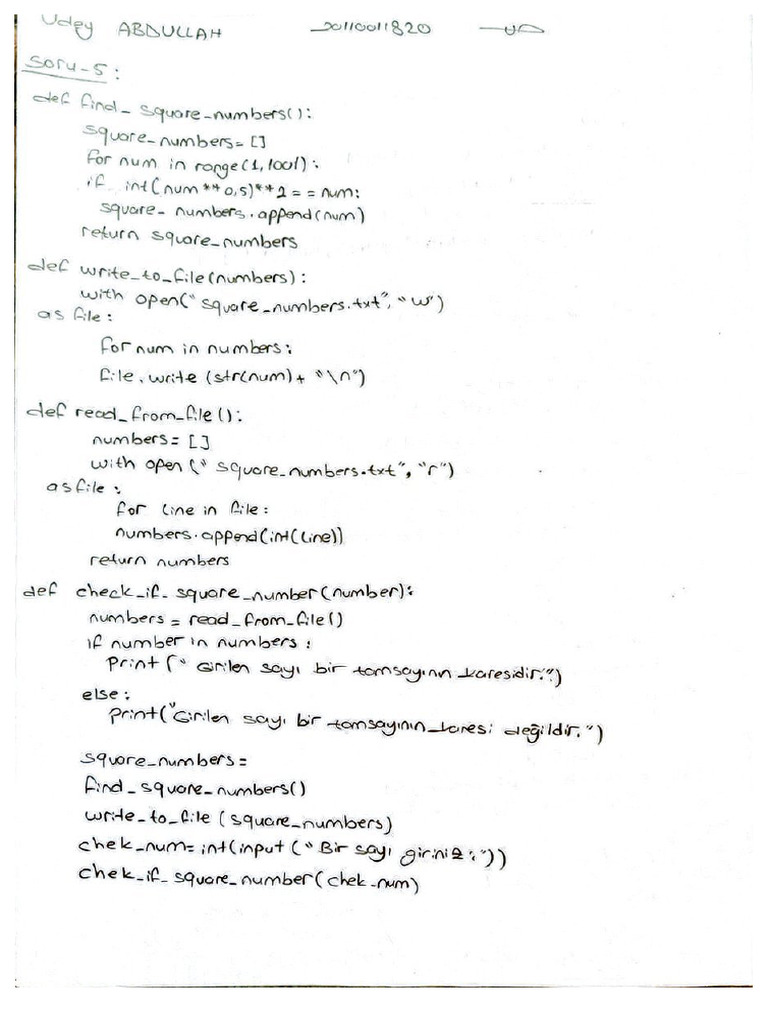 Udey ABDULLAH 20110011820
Soru-5:
def find_square_numbers():
square_numbers= []
for num in range(1,1001):
if int(num**0,5)**2 == num:
square_numbers.append(num)
return square_numbers
def write_to_file(numbers):
with open("square_numbers.txt", "w")
as file:
for num in numbers:
file.write (str(num)+ "\n")
def read_from_file():
numbers= []
with open (" square_numbers.txt", "r")
as file:
for line in file:
numbers.append(int(line))
return numbers
def check_if_square_number(number):
numbers = read_from_file()
if number in numbers:
Print (" Girilen sayı bir tamsayının karesidir.")
else:
Print("Girilen sayı bir tamsayının karesi değildir.")
square_numbers=
find_square_numbers()
write_to_file (square_numbers)
chek_num= int(input (" Bir sayı giriniz:"))
chek_if_square_number(chek_num)